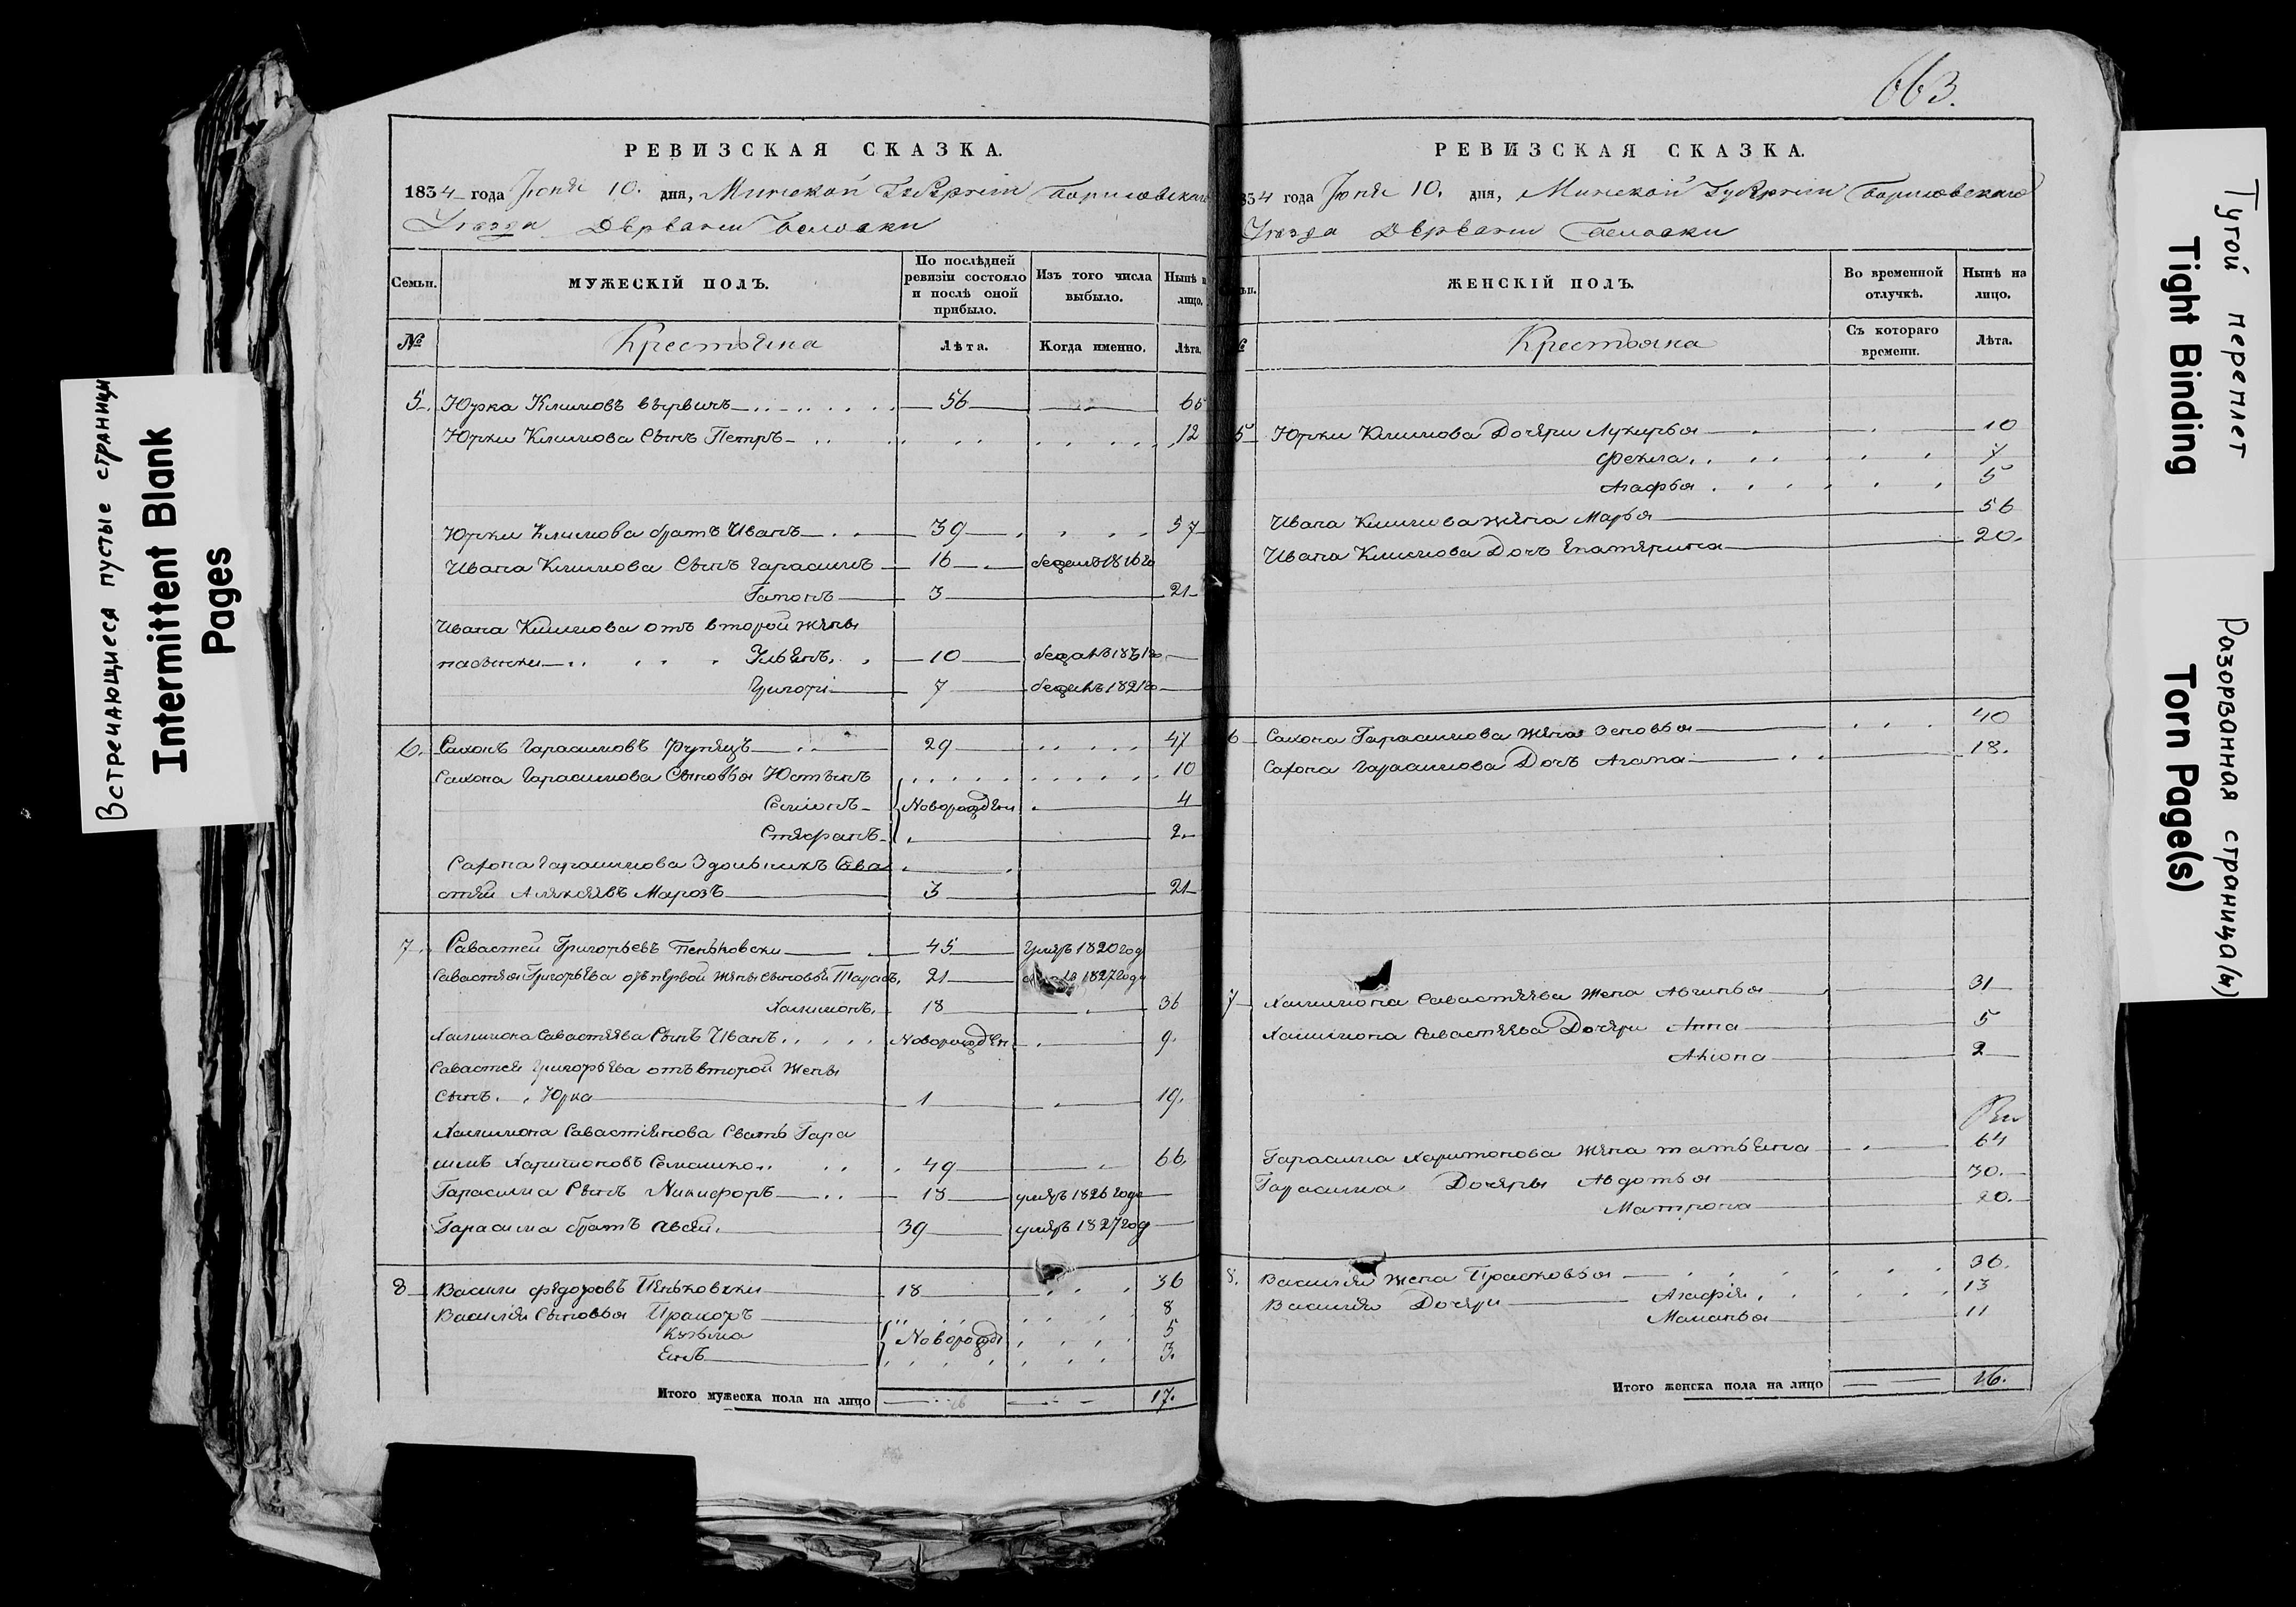 663.
РЕВИЗСКАЯ СКАЗКА.
1834 года Іюня 10. дня, Минской Губерніи Борисовскаго
Уезда Деревни Беловки
Семьи. МУЖЕСКІЙ ПОЛЪ. По послѣдней ревизіи состояло и послѣ оной прибыло. Изъ того числа выбыло. Нынѣ на лицо.
№ Крестьяна Лѣта. Когда именно. Лѣта.
5. Юрка Климовъ 56 65
Юрки Климова Сынъ Петръ 12
Юрки Климова братъ Иванъ 39 57
Ивана Климова Сынъ Гарасимъ 16 бежалъ 1816 го
Гапонъ 3 21
Ивана Климова отъ второй жены
пасынки 10
Григорі 7 1821 го
6. Сахонъ Гарасимовъ 29 47
Сахона Гарасимова Сыновья Юстынъ 10
Семіонъ Новорожден 4
Стефанъ 2
Сахона Гарасимова Здольникъ Сава
стей Алексеевъ Марозъ 3 21
7. Савастей Григорьевъ Пеньковски 45 умеръ 1820 год
Савастея Григорьева отъ первой жены сыновья Тарасъ 21 1827 года
Халимонъ 18 36
Халимона Савастеева Сынъ Иванъ Новорожден 9
Савастея Григорьева отъ второй жены
Сынъ Юрка 1 19.
Халимона Савастіенова Сватъ Гара
симъ Харитоновъ Семашко 49 66.
Гарасима Сынъ Никифоръ 18 умеръ 1826 года
Гарасима братъ Авсей. 39 умеръ 1827 год
8 Васили Федоровъ Пеньковски 18 36
Василія Сыновья Пракопъ 8
Кузьма Новорожд 5
3.
Итого мужеска пола на лицо 17.
РЕВИЗСКАЯ СКАЗКА.
834 года Іюня 10. дня, Минской Губерніи Борисовскаго
Уезда Деревни Беловки
ЖЕНСКІЙ ПОЛЪ. Во временной отлучкѣ. Нынѣ на лицо.
Крестьяна Съ котораго времени. Лѣта.
5 Юрки Климова Дочери Лукерья 10
Фекла 7
Агафья 5
Ивана Климова жена Марья 56
Ивана Климова Дочь Екатерина 20.
6 Сахона Гарасимова жена Зеновья 40
Сахона Гарасимова Дочь Агата 18.
7 Халимона Савастеева Жена Авгинья 31
Халимона Савастеева Дочери Анна 5
2
Гарасима Харитонова жена татьяна 64
Гарасима Дочери Авдотья 30.
Матрона 20.
8. Василія жена Прасковья 36.
Василія Дочери Агафія 13
Маланья 11
Итого женска пола на лицо 16.
Встречающиеся пустые страницы
Intermittent Blank Pages
Тугой переплет
Tight Binding
Разорванная страница(ы)
Torn Page(s)